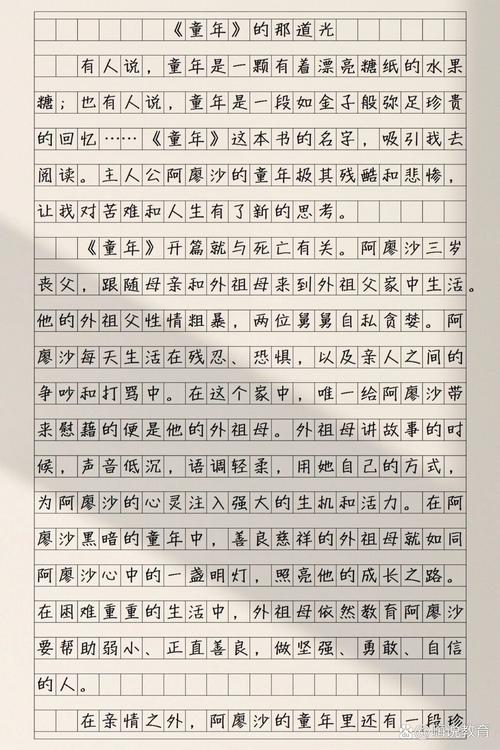 《童年》的那道光
有人说，童年是一颗有着漂亮糖纸的水果
糖；也有人说，童年是一段如金子般弥足珍贵
的回忆……《童年》这本书的名字，吸引我去
阅读。主人公阿廖沙的童年极其残酷和悲惨，
让我对苦难和人生有了新的思考。
《童年》开篇就与死亡有关。阿廖沙三岁
丧父，跟随母亲和外祖母来到外祖父家中生活。
他的外祖父性情粗暴，两位舅舅自私贪婪。阿
廖沙每天生活在残忍、恐惧，以及亲人之间的
争吵和打骂中。在这个家中，唯一给阿廖沙带
来慰藉的便是他的外祖母。外祖母讲故事的时
候，声音低沉，语调轻柔，用她自己的方式，
为阿廖沙的心灵注入强大的生机和活力。在阿
廖沙黑暗的童年中，善良慈祥的外祖母就如同
阿廖沙心中的一盏明灯，照亮他的成长之路。
在困难重重的生活中，外祖母依然教育阿廖沙
要帮助弱小、正直善良，做坚强、勇敢、自信
的人。
在亲情之外，阿廖沙的童年里还有一段珍